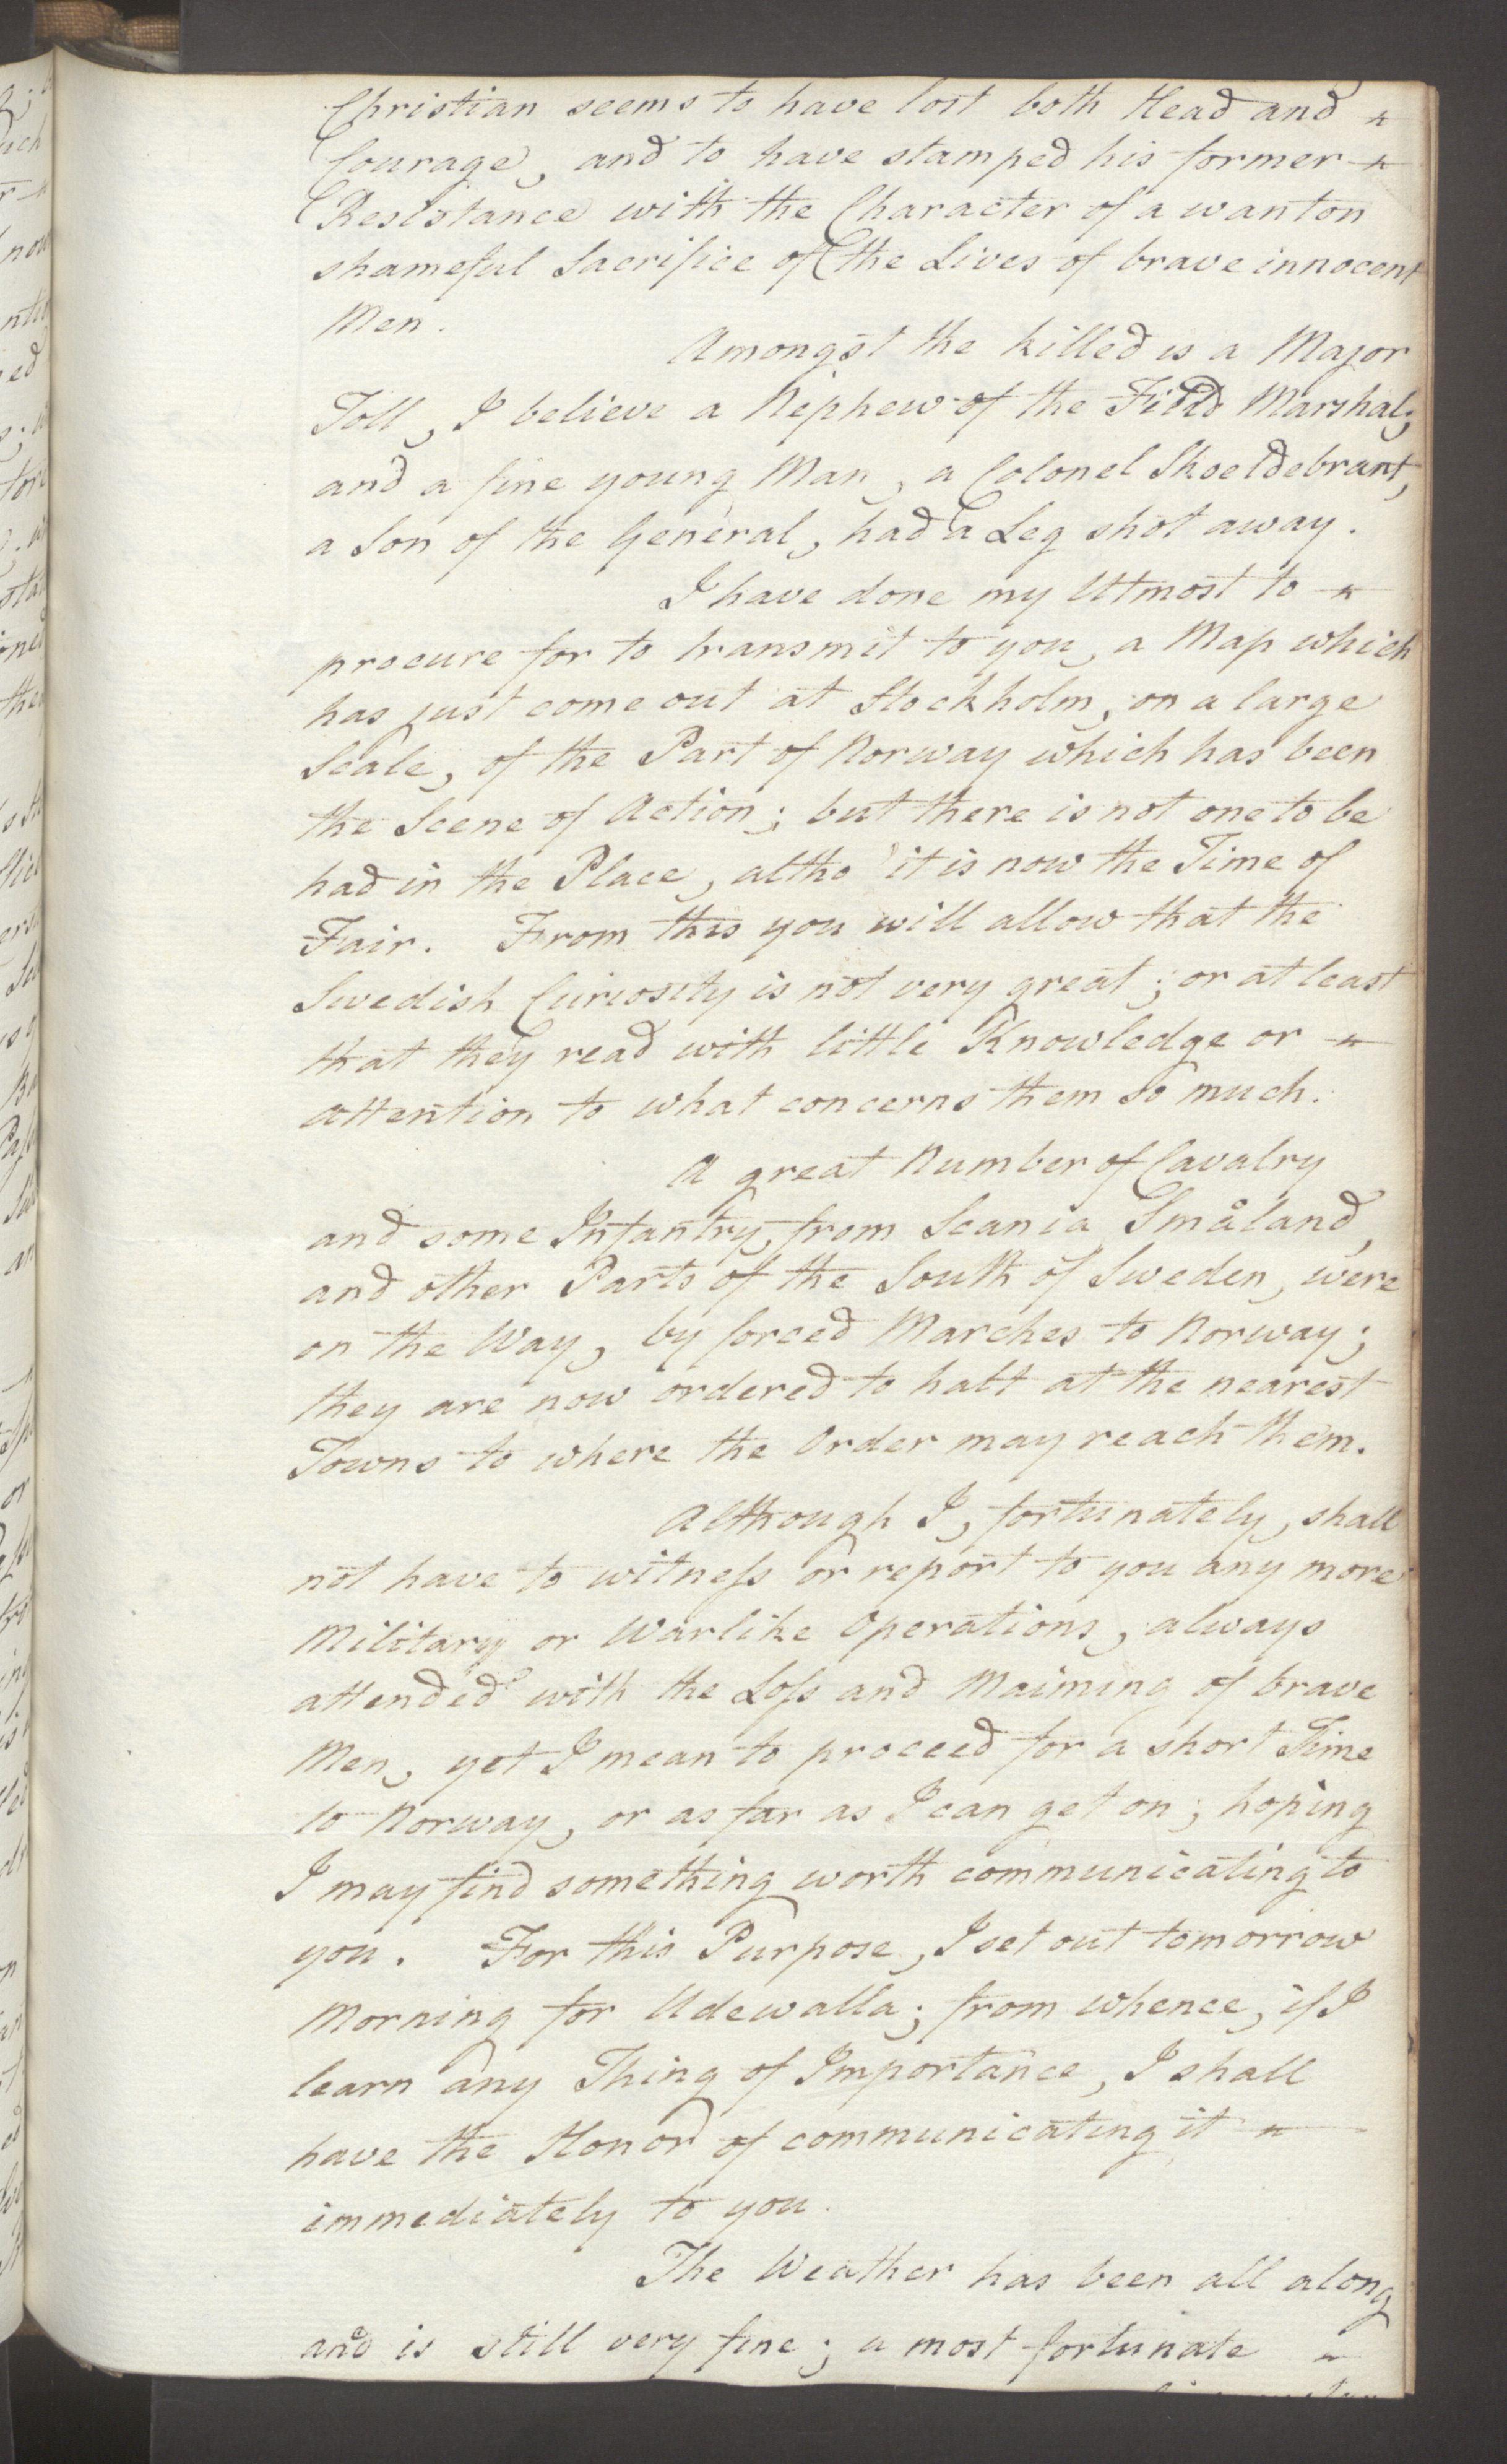 Christian seems to have lost both Head and
Courage, and to have stamped his former
Resistance with the Character of a wanton
shameful Sacrifice of the Lives of brave innocent
Men.
Amongst the killed is a Major
Toll, I believe a Nephew of the Field Marshal;
and a fine young Man, a Colonel Skoeldebrant,
a Son of the General, had a Leg shot away.
I have done my Utmost to
procure for to transmit to you, a Map which
has just come out at Stockholm, on a large
Scale, of the Part of Norway which has been
the Scene of Action; but there is not one to be
had in the Place, altho' it is now the Time of
Fair. From this you will allow that the
Swedish Curiosity is not very great; or at least
that they read with little Knowledge or
attention to what concerns them so much.
A great Number of Cavalry
and some Infantry, from Scania Småland,
and other Parts of the South of Sweden, were
on the Way, by forced Marches to Norway;
they are now ordered to halt at the nearest
Towns to where the Order may reach them.
Although I, fortunately, shall
not have to witneſs or report to you any more
Military or Warlike Operations, always
attended with the Loſs and Maiming of brave
Men, yet I mean to proceed for a short Time
to Norway, or as far as I can get on; hoping
I may find something worth communicating to
you. For this Purpose, I set out tomorrow
Morning for Udewalla; from whence, if I
learn any Thing of Importance, I shall
have the Honor of communicating it
immediately to you.
The Weather has been all along
and is still very fine; a most fortunate